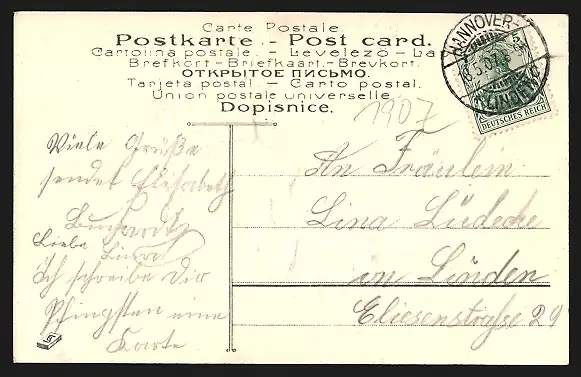 Carte Postale
Postkarte - Post card.
Cartolina postale. - Levelező - Lap
Brefkort - Briefkaart. - Brevkort.
ОТКРЫТОЕ ПИСЬМО.
Tarjeta postal - Carto postal.
Union postale universelle
Dopisnice.
HANNOVER
(LINDEN)
5
DEUTSCHES REICH
1907
An Fräulein
Lina Lüdecke
in Linden
Eliesenstraße 29
Viele Grüße
sendet Elisabeth
Liebe
ich schreibe dir
Pfingsten eine
Karte